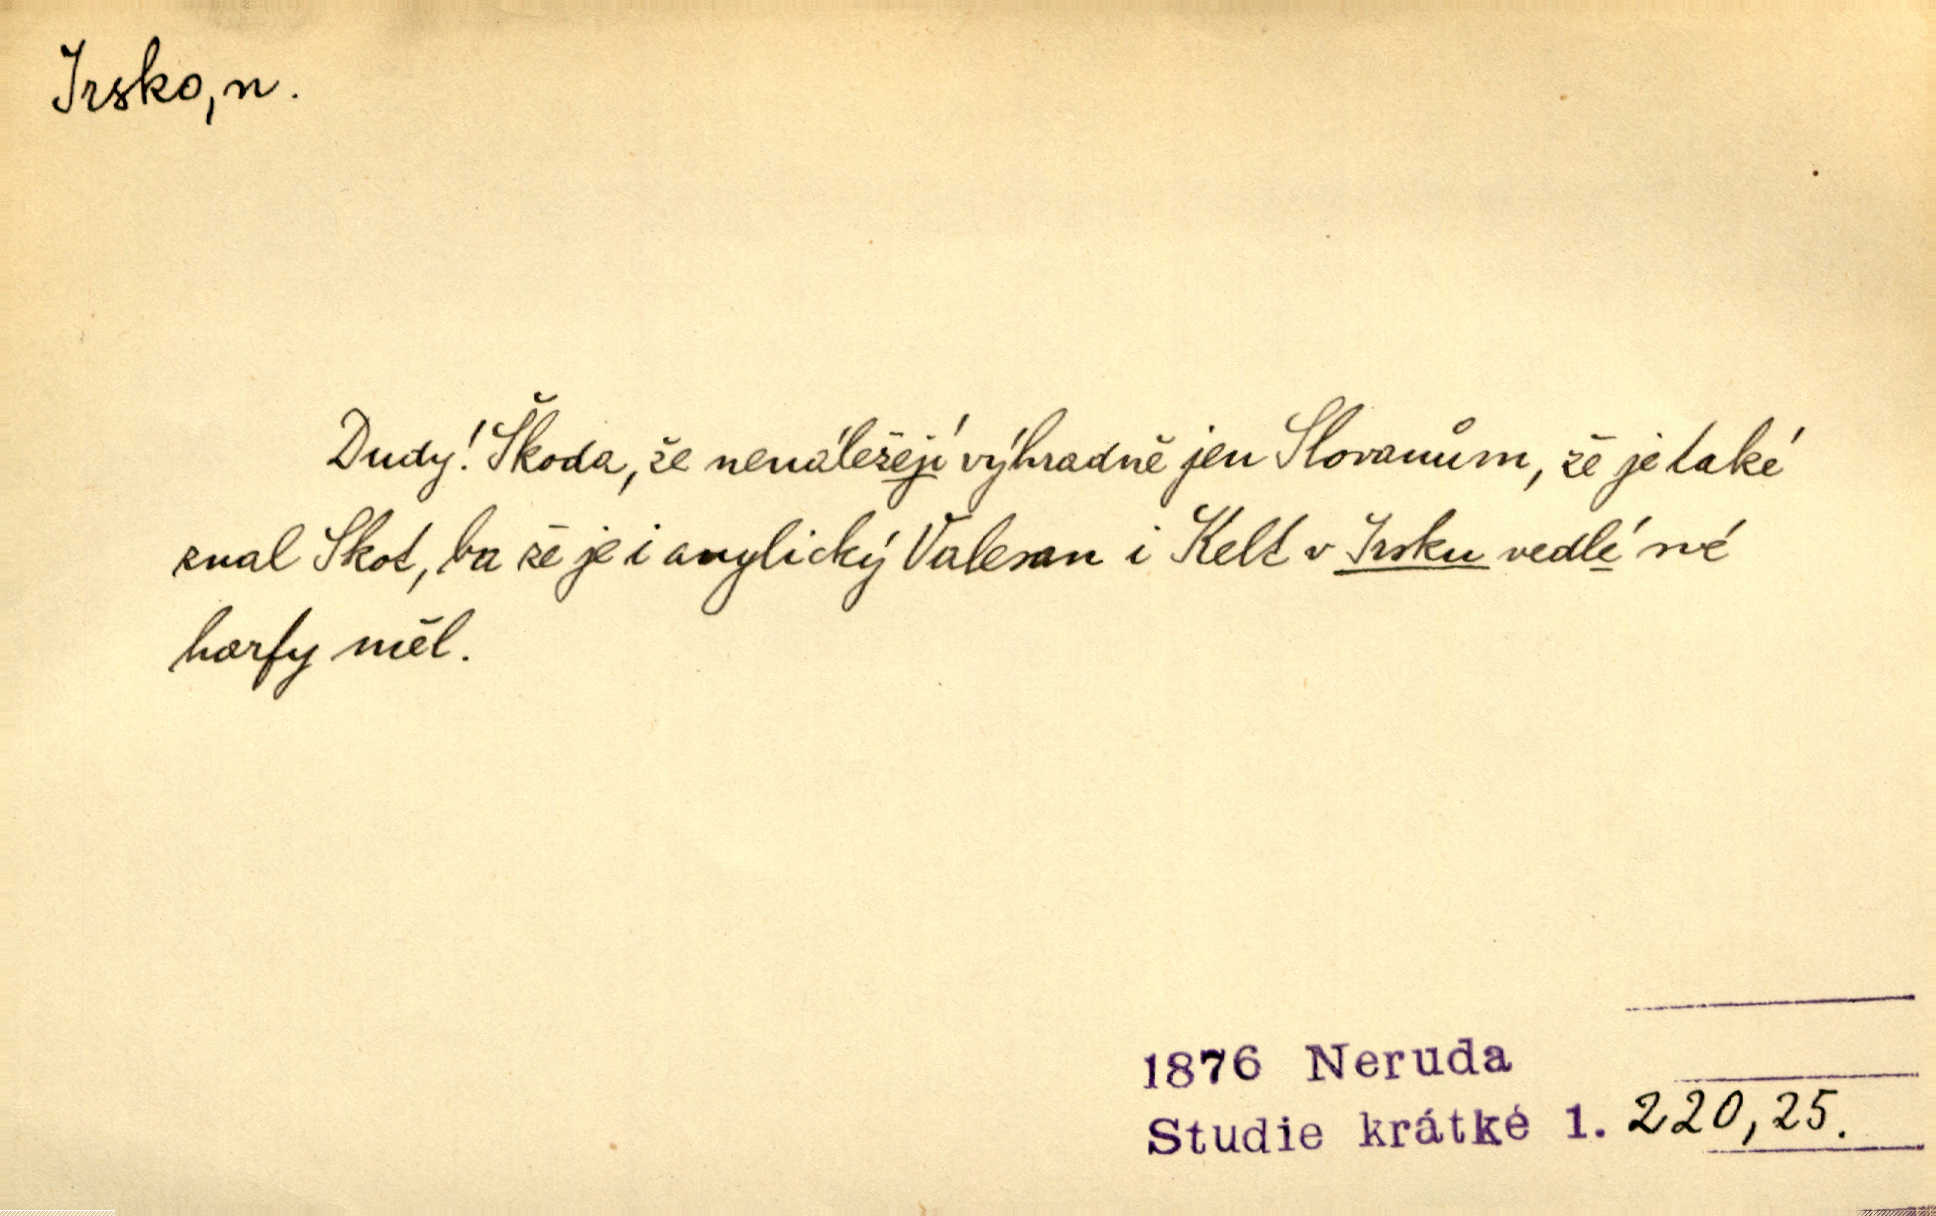 Irsko, n.
Dudy! Škoda, že nenáležejí výhradně jen Slovanům, že je také
znal Skot, ba že je i anglický Valesan i Kelt v Irsku vedlé své
harfy měl.
1876 Neruda
Studie krátké 1. 220, 25.